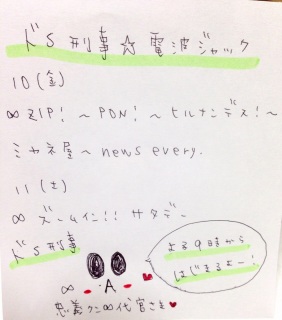 ドS刑事☆電波ジャック
10(金)
∞ZIP!～PON!～ヒルナンデス!～
ミヤネ屋～news every.
11(土)
∞ズームイン!!サタデー
ドS刑事
よる9時から
はじまるよー!
∞
忠義クン∞代官さま♥